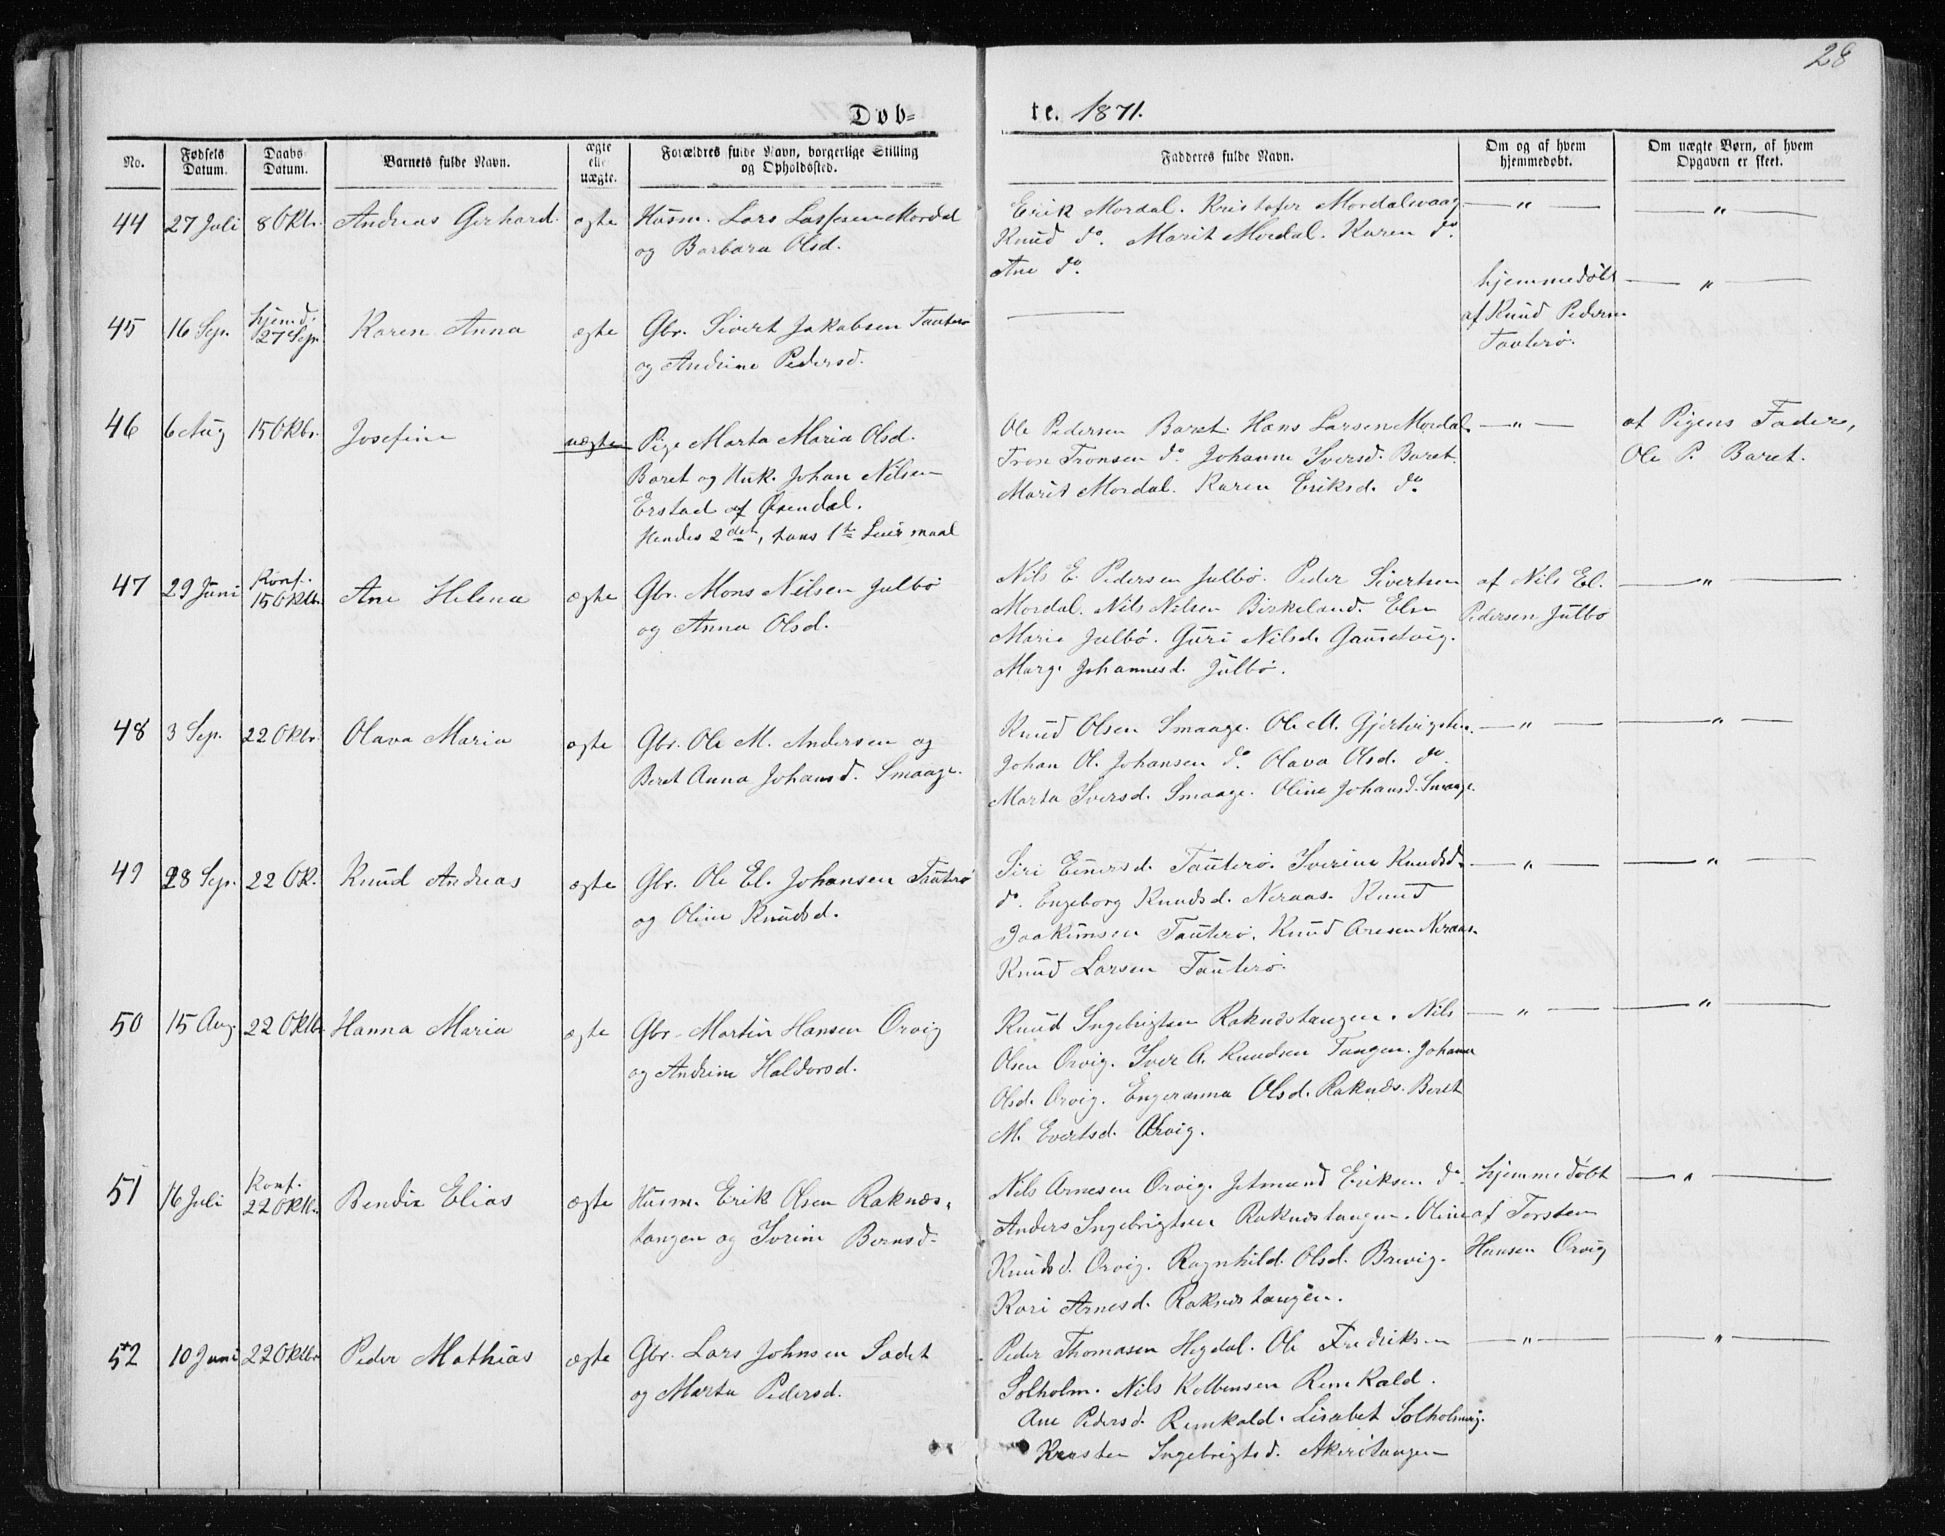 28
Døb-
te. 1871.
No.
Fødsels Datum.
Daabs Datum.
Barnets fulde Navn.
ægte elle uægte.
Forældres fulde Navn, borgerlige Stilling og Opholdssted.
Fadderes fulde Navn.
Om og af hvem hjemmedøbt.
Om uægte Børn, af hvem Opgaven er skeet.
44 27 Juli 8 Oktr. Andreas Gerhard. ægte Husm. Lars Lassesen Mordal
og Barbara Olsd.
Erik Mordal. Kristofer Mordalsvaag — " — — " —
Knud do. Marit Mordal. Karen do.
Ane do.
45 16 Sep. hjemd. 27 Sep. Karen Anna ægte Gbr. Sivert Jakobsen Tauterø
og Andrine Pedersd.
—
hjemmedøbt — " —
af Knud Pedersen
Tauterø.
46 6 Aug 15 Oktbr. Josefine uægte Pige Marta Maria Olsd.
Baret og Unk. Johan Nilsen
Erstad af
Hendes 2det, hans 1te Leiermaal
Ole Pedersen Baret. Hans Larsen Mordal. — " — af Pigens Fader,
Tron Tronsen do. Johanne Iversd. Baret. Ole P. Baret.
Marit Mordal. Karen Eriksd. do
47 29 Juni Konf. 15 Oktbr. Ane Helena ægte Gbr. Mons Nilsen Julbø
og Anna Olsd.
Nils E. Pedersen Julbø. Peder Sivertsen af Nils El. — " —
Mordal. Nils Nilsen Birkeland. Elen Pedersen Julbø
Marie Julbø. Guri Nilsd. Gausetvig.
Marg. Johannesd. Julbø.
48 3 Sep. 22 Oktbr. Olava Maria ægte Gbr. Ole M. Andersen og
Beret Anna Johansd. Smaage.
Knud Olsen Smaage. Ole M. Gjertvigsten. — " — — " —
Johan O. Johansen do. Olava Olsd. do.
Marta Iversd. Smaage. Oline Johansd. Smaage.
49 28 Sep. 22 Ok. Knud Andreas ægte Gbr. Ole El. Johansen Tauterø
og Oline Knudsd.
Siri Einersd. Tauterø. Iverine Knudsd. — " — — " —
do. Engeborg Knudsd. Neraas. Knud
Joakimsen Tauterø. Knud Aresen Neraas.
Knud Larsen Tauterø.
50 15 Aug. 22 Oktbr. Hanna Maria ægte Gbr. Martin Hansen Orvig
og Andrine Haldorsd.
Knud Ingebrigtsen Raknestangen. Nils — " — — " —
Olsen Orvig. Iver A. Knudsen Tangen. Johanna
Olsd. Orvig. Engeranna Olsd. Raknes. Beret
M. Evertsd. Orvig.
51 16 Juli Konf. 22 Oktb. Bendix Elias ægte Husm. Erik Olsen Raknes-
tangen og Iverine Berntsd.
Nils Arnesen Orvig. Jetmund Eriksen do. hjemmedøbt — " —
Anders Ingebrigtsen Raknestangen. Oline af Torsten
Knudsd. Orvig. Ragnhild Olsd. Brevig. Hansen Orvig
Kari Arnesd. Raknestangen.
52 10 Juni 22 Oktbr Peder Mathias ægte Gbr. Lars Johnsen Sadet
og Marta Pedersd.
Peder Thomasen Hegdal. Ole Fredriksen — " — — " —
Solholm. Nils Kolbensen Remkald.
Ane Pedersd. Remkald. Lisabet Solholmvig.
Kersten Ingebrigtsd. Akerøtangen